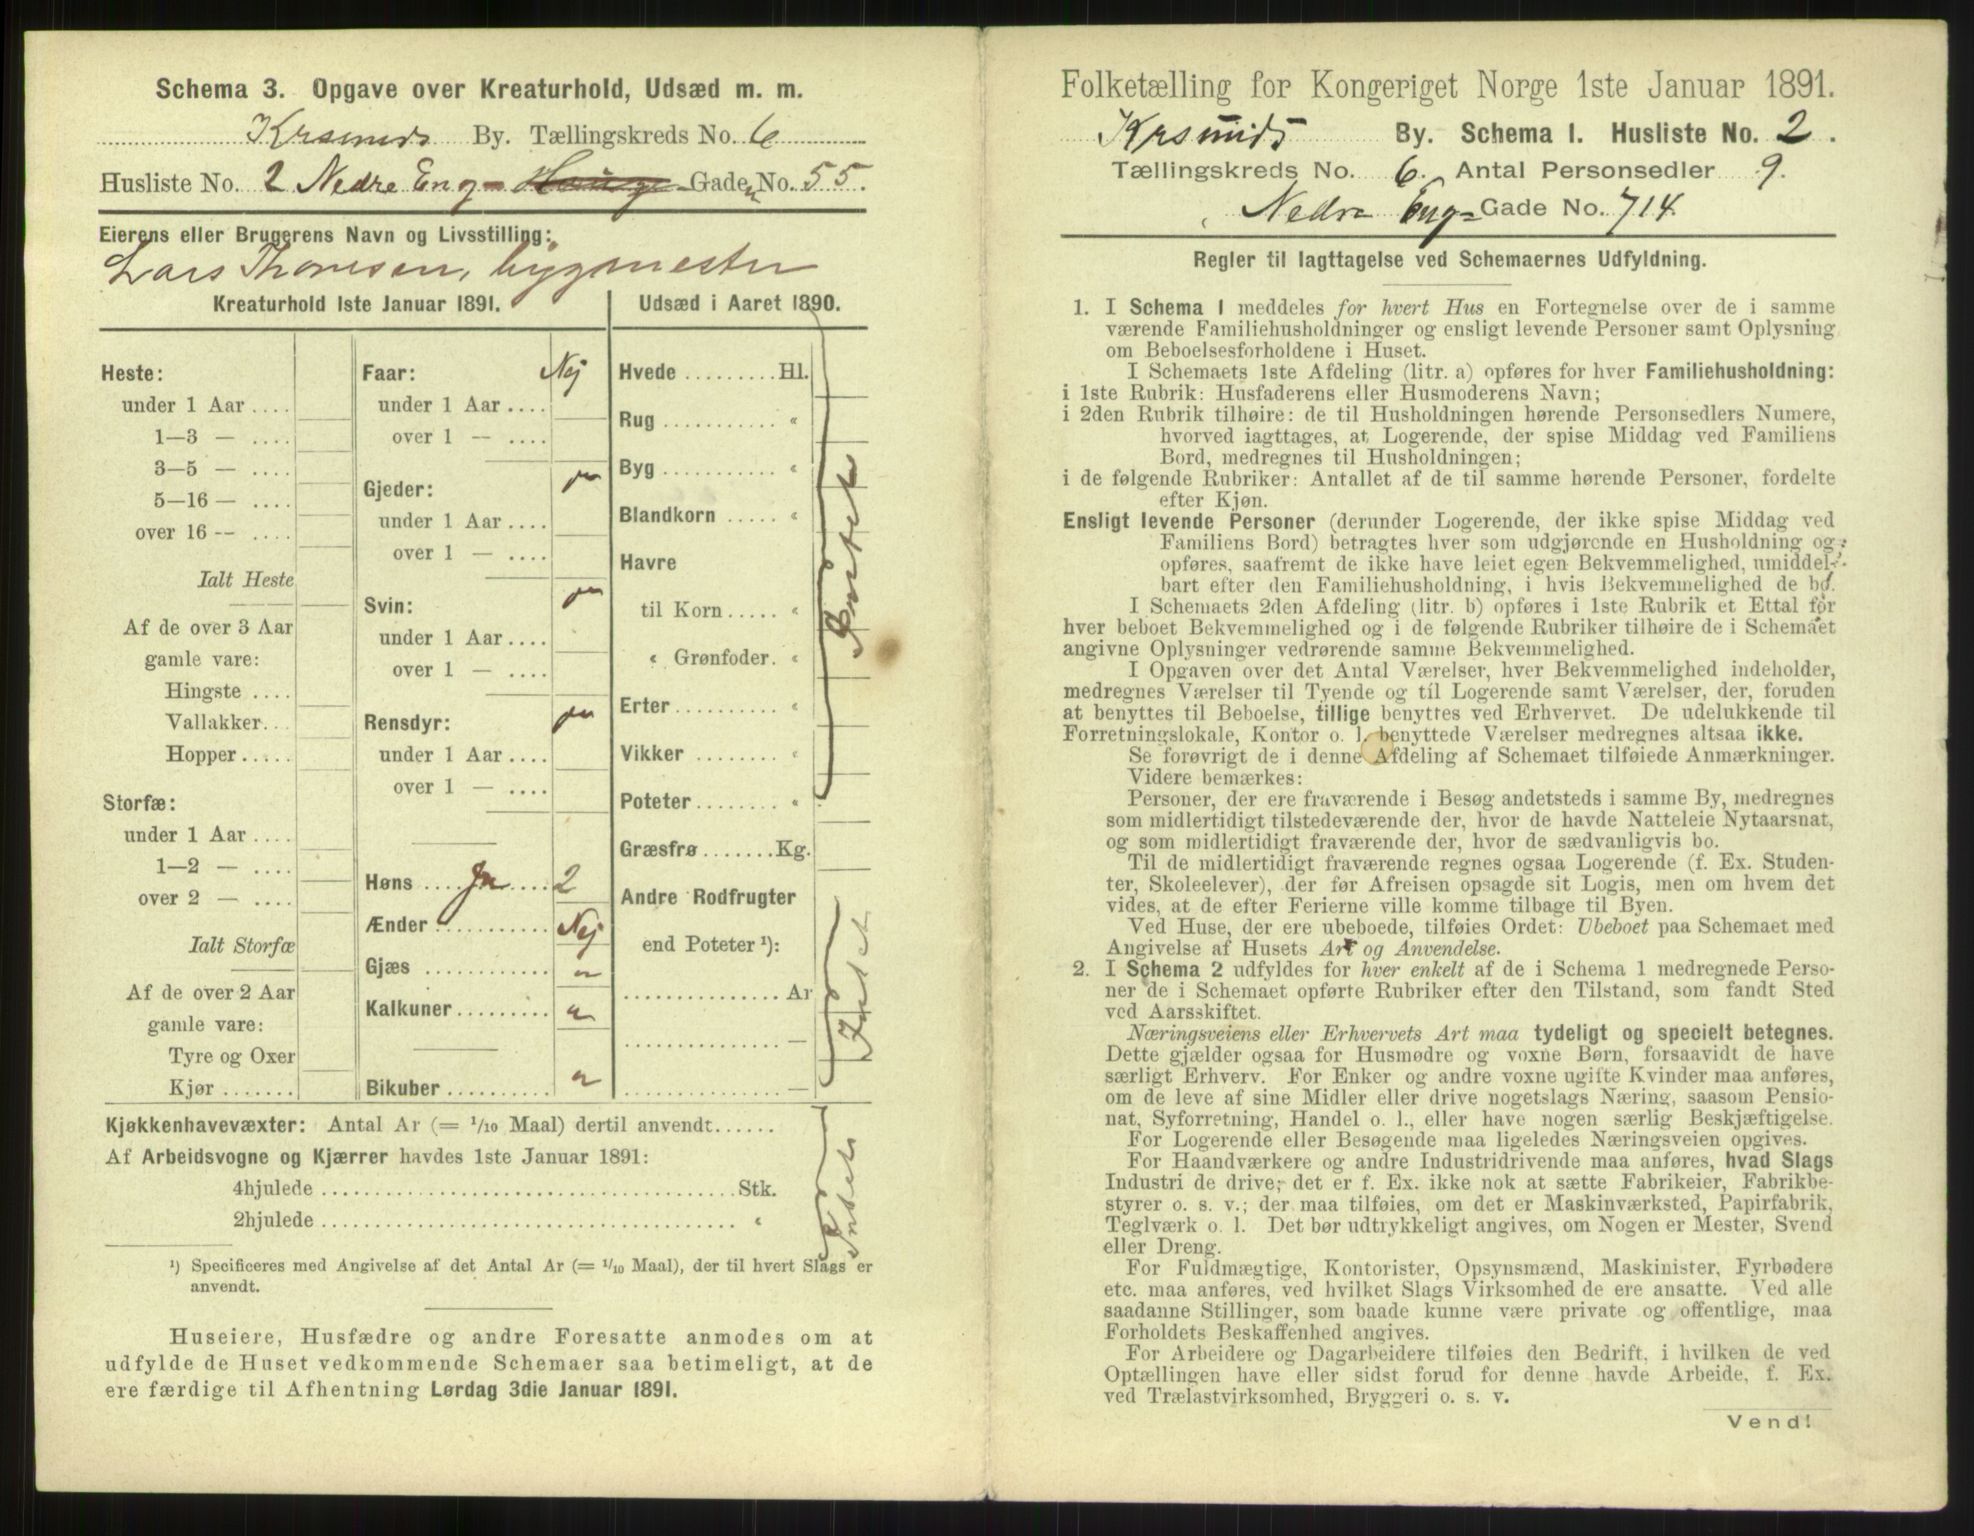 Schema 3. Opgave over Kreaturhold, Udsæd m. m.
Krsunds By. Tællingskreds No. 6
Husliste No. 2 Nedre Eng- Gaden No. 55.
Eierens eller Brugerens Navn og Livsstilling:
Lars Thomsen, bygmester
Kreaturhold 1ste Januar 1891.
Heste:
under 1 Aar ....
1—3 — ....
3—5 — ....
5—16 — ....
over 16 -- ....
Ialt Heste
Af de over 3 Aar
gamle vare:
Hingste ....
Vallakker...
Hopper.....
Storfæ:
under 1 Aar ....
1—2 — ....
over 2 — ....
Ialt Storfæ
Af de over 2 Aar
gamle vare:
Tyre og Oxer
Kjør .......
Faar: Nej
under 1 Aar ....
over 1 — ....
Gjeder: "
under 1 Aar ....
over 1 — ....
Svin: "
under 1 Aar ....
over 1 — ....
Rensdyr: "
under 1 Aar ....
over 1 — ....
Høns .... Ja .... 2
Ænder ........... Nej
Gjæs ............ "
Kalkuner ......... "
Bikuber .......... "
Udsæd i Aaret 1890.
Hvede ......... Hl.
Rug ........... "
Byg ........... "
Blandkorn ..... "
Havre
til Korn ..... "
" Grønfoder. "
Erter.......... "
Vikker ........ "
Poteter ........ "
Intet
Græsfrø ....... Kg.
Andre Rodfrugter
end Poteter ¹):
............... Ar
............... —
............... —
Intet
Kjøkkenhavevæxter: Antal Ar (= 1/10 Maal) dertil anvendt......
Af Arbeidsvogne og Kjærrer havdes 1ste Januar 1891:
4hjulede ........................................ Stk.
2hjulede ........................................ "
Intet
¹) Specificeres med Angivelse af det Antal Ar (= 1/10 Maal), der til hvert Slags er
anvendt.
Huseiere, Husfædre og andre Foresatte anmodes om at
udfylde de Huset vedkommende Schemaer saa betimeligt, at de
ere færdige til Afhentning Lørdag 3die Januar 1891.
Folketælling for Kongeriget Norge 1ste Januar 1891.
Krsunds By. Schema I. Husliste No. 2.
Tællingskreds No. 6. Antal Personsedler 9.
Nedre Eng- Gade No. 714
Regler til Iagttagelse ved Schemaernes Udfyldning.
1. I Schema 1 meddeles for hvert Hus en Fortegnelse over de i samme
værende Familiehusholdninger og ensligt levende Personer samt Oplysning
om Beboelsesforholdene i Huset.
I Schemaets 1ste Afdeling (litr. a) opføres for hver Familiehusholdning:
i 1ste Rubrik: Husfaderens eller Husmoderens Navn;
i 2den Rubrik tilhøire: de til Husholdningen hørende Personsedlers Numere,
hvorved iagttages, at Logerende, der spise Middag ved Familiens
Bord, medregnes til Husholdningen;
i de følgende Rubriker: Antallet af de til samme hørende Personer, fordelte
efter Kjøn.
Ensligt levende Personer (derunder Logerende, der ikke spise Middag ved
Familiens Bord) betragtes hver som udgjørende en Husholdning og
opføres, saafremt de ikke have leiet egen Bekvemmelighed, umiddel-
bart efter den Familiehusholdning, i hvis Bekvemmelighed de bo.
I Schemaets 2den Afdeling (litr. b) opføres i 1ste Rubrik et Ettal for
hver beboet Bekvemmelighed og i de følgende Rubriker tilhøire de i Schemaet
angivne Oplysninger vedrørende samme Bekvemmelighed.
I Opgaven over det Antal Værelser, hver Bekvemmelighed indeholder,
medregnes Værelser til Tyende og til Logerende samt Værelser, der, foruden
at benyttes til Beboelse, tillige benyttes ved Erhvervet. De udelukkende til
Forretningslokale, Kontor o. l. benyttede Værelser medregnes altsaa ikke.
Se forøvrigt de i denne Afdeling af Schemaet tilføiede Anmærkninger.
Videre bemærkes:
Personer, der ere fraværende i Besøg andetsteds i samme By, medregnes
som midlertidigt tilstedeværende der, hvor de havde Natteleie Nytaarsnat,
og som midlertidigt fraværende der, hvor de sædvanligvis bo.
Til de midlertidigt fraværende regnes ogsaa Logerende (f. Ex. Studen-
ter, Skoleelever), der før Afreisen opsagde sit Logis, men om hvem det
vides, at de efter Ferierne ville komme tilbage til Byen.
Ved Huse, der ere ubeboede, tilføies Ordet: Ubeboet paa Schemaet med
Angivelse af Husets Art og Anvendelse.
2. I Schema 2 udfyldes for hver enkelt af de i Schema 1 medregnede Perso-
ner de i Schemaet opførte Rubriker efter den Tilstand, som fandt Sted
ved Aarsskiftet.
Næringsveiens eller Erhvervets Art maa tydeligt og specielt betegnes.
Dette gjælder ogsaa for Husmødre og voxne Børn, forsaavidt de have
særligt Erhverv. For Enker og andre voxne ugifte Kvinder maa anføres,
om de leve af sine Midler eller drive nogetslags Næring, saasom Pensio-
nat, Syforretning, Handel o. l., eller have nogen særlig Beskjæftigelse.
For Logerende eller Besøgende maa ligeledes Næringsveien opgives.
For Haandværkere og andre Industridrivende maa anføres, hvad Slags
Industri de drive; det er f. Ex. ikke nok at sætte Fabrikeier, Fabrikbe-
styrer o. s. v.; der maa tilføies, om det er Maskinværksted, Papirfabrik,
Teglværk o. l. Det bør udtrykkeligt angives, om Nogen er Mester, Svend
eller Dreng.
For Fuldmægtige, Kontorister, Opsynsmænd, Maskinister, Fyrbødere
etc. maa anføres, ved hvilket Slags Virksomhed de ere ansatte. Ved alle
saadanne Stillinger, som baade kunne være private og offentlige, maa
Forholdets Beskaffenhed angives.
For Arbeidere og Dagarbeidere tilføies den Bedrift, i hvilken de ved
Optællingen have eller sidst forud for denne havde Arbeide, f. Ex.
ved Trælastvirksomhed, Bryggeri o. s. v.
Vend!